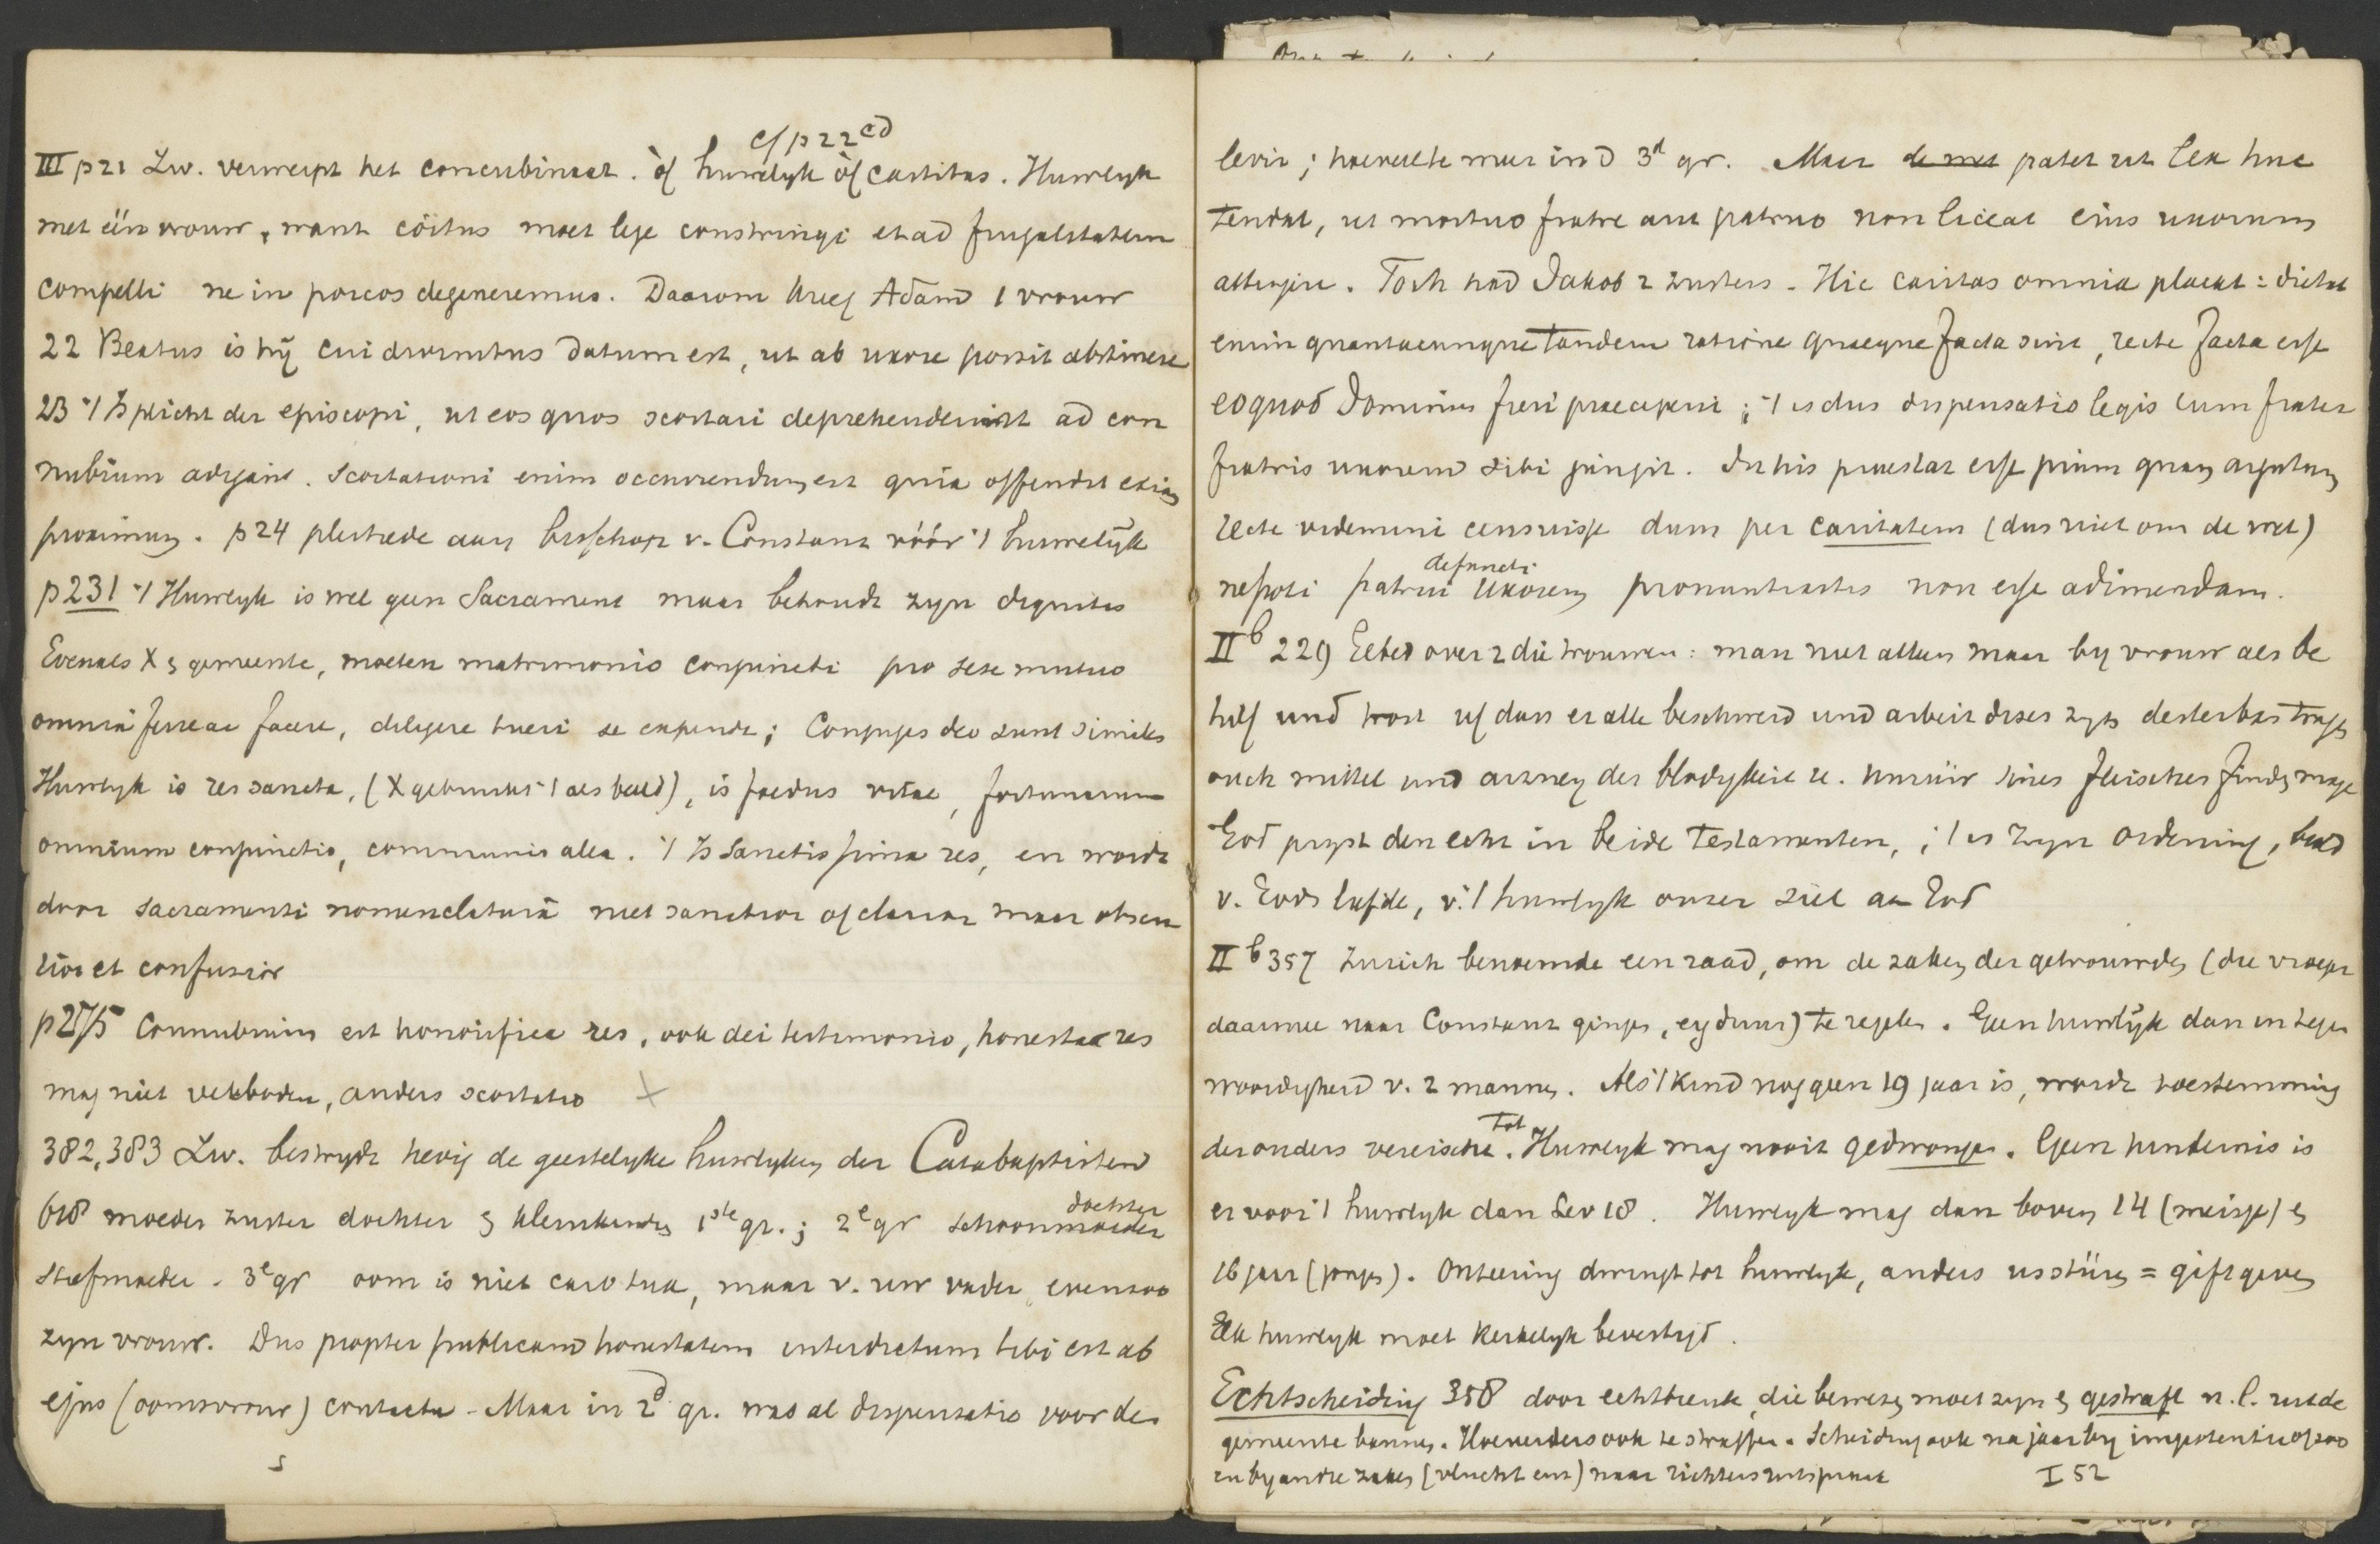 cf p 22 cd
III p 21 Zw. verwerpt het concubinaat. òf huwelyk òf castitas. Huwelyk
met één vrouw, want cöitus moet lege constringi et ad frugalitatem
compelli ne in porcos degeneremus. Daarom kreeg Adam 1 vrouw
22 Beatus is hij cui divinitus datum est, ut ab uxore possit abstinere
23 't Is plicht der episcopi, ut eos quos scortari deprehenderint ad con
nubium adigant. Scortationi enim occurrendum est quia offendit etiam
proximum. p 24 pleitrede aan bisschop v. Constanz vóór 't huwelijk
p 231 't Huwlyk is wel geen Sacrament maar behoudt zyn dignitas
Evenals X en gemeente, moeten matrimonio conjuncti pro sese mutuo
omnia ferre ac facere, diligere tueri se expendi; Conjuges deo sunt similes
Huwlyk is res sancta, (X gebruikt 't als beeld), is foedus vitae, fortunarum
omnium conjunctio, communis alea. 't Is sanctissima res, en wordt
door sacramenti nomenclaturâ niet sanctior of clarior maar obscu
rior et confusior
p 275 Connubium est honorifica res, ook dei testimonio, honesta res
mag niet verboden, anders scortatio X
382, 383 Zw. bestrydt hevig de geestelyke huwlyken der Catabaptisten
dochter
618 moeder zuster dochter en kleinkinders 1ste gr.; 2e gr schoonmoeder
stiefmoeder. 3e gr oom is niet caro tua, maar v. uw vader, evenzoo
zyn vrouw. Dus propter publicam honestatem interdictum tibi est ab
ejus (oomsvrouw) contactu. Maar in 2d gr. was al dispensatio voor de
s
levir; hoeveelte meer in d 3d gr. Maar de wet patet ut lex huc
tendat, ut mortuo fratre aut patruo non liceat eius uxorem
attingere. Toch had Jakob 2 zusters. Hic caritas omnia placat: dictat
enim quantacunque tandem ratione quaeque facta sint, recte facta esse
eo quod Dominus fieri praeceperit; 't is dus dispensatio legis cum frater
fratris uxorem sibi jungit. In his praestat esse pium quam argutum
Recte videmini censuisse dum per caritatem (dus niet om de wet)
defuncti
nepoti patrui uxorem pronuntiastis non esse adimendam.
II b 229 Gebed over 2 die trouwen: man niet alleen maar by vrouw als be
hilf und trost uf dass er alle beschwerd und arbeit diser zyt desterbas tragen
ouch mittel und arzney der blodykeit u. unruw sines fleisches finden moge
God pryst den echt in beide Testamenten, 't is Zyn ordening, beeld
v. Gods liefde, v. 't huwlyk onzer ziel aan God
II b 357 Zurich benoemde een raad, om de zaken der getrouwden (die vroeger
daarmee naar Constanz gingen, erg duur) te regelen. Geen huwlijk dan in tegen
woordigheid v. 2 mannen. Als 't kind nog geen 19 jaar is, wordt toestemming
Tot
der ouders vereischt. Huwlyk mag nooit gedwongen. Geen hindernis is
er voor 't huwlyk dan Lev 18. Huwlyk mag dan boven 14 (meisje) en
16 jaar (jongen). Onteering dwingt tot huwlyk, anders usstüren = gift geven
Elk huwlyk moet kerkelyk bevestigd.
Echtscheiding 358 door echtbreuk, die bewezen moet zyn en gestraft n.l. uit de
gemeente bannen. Hoereerders ook te straffen. Scheiding ook na jaar by impotentie of zoo
en by andre zaken (vlucht enz) naar richters uitspraak I 52